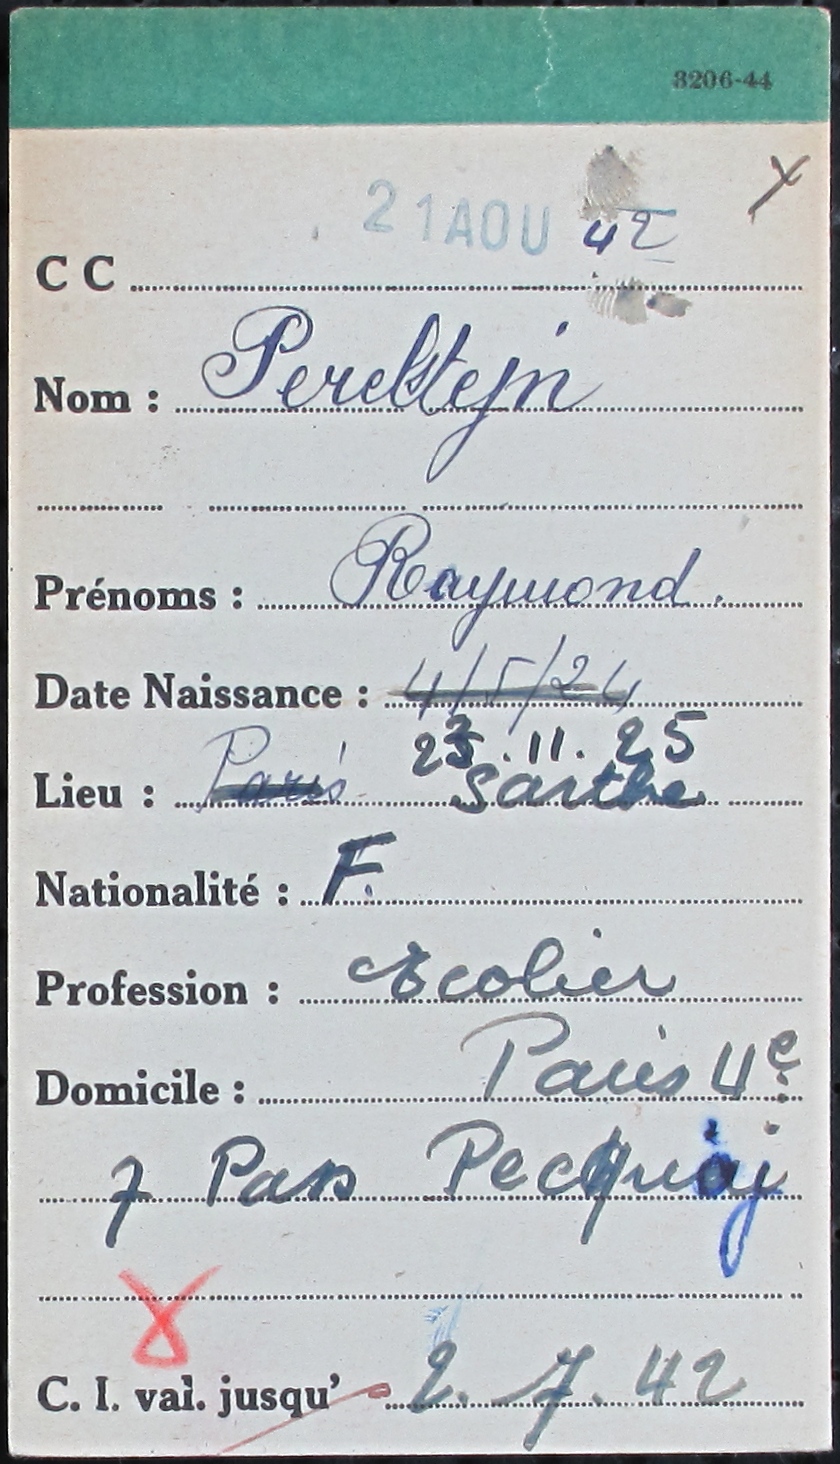 3206-44
21 AOU 42
C C
Nom : Perelstejn
Prénoms : Raymond.
Date Naissance : 4/5/24
23.11.25
Lieu : Paris Sarthe
Nationalité : F.
Profession : Ecolier
Domicile : Paris 4e
7 Pas Pecquaj
C. I. val. jusqu' 2. 7. 42